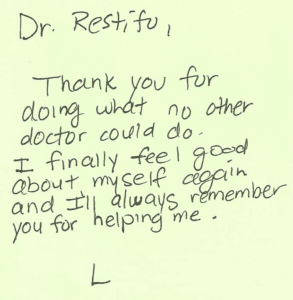 Dr. Restifo,
Thank you for
doing what no other
doctor could do.
I finally feel good
about myself again
and I'll always remember
you for helping me.
L